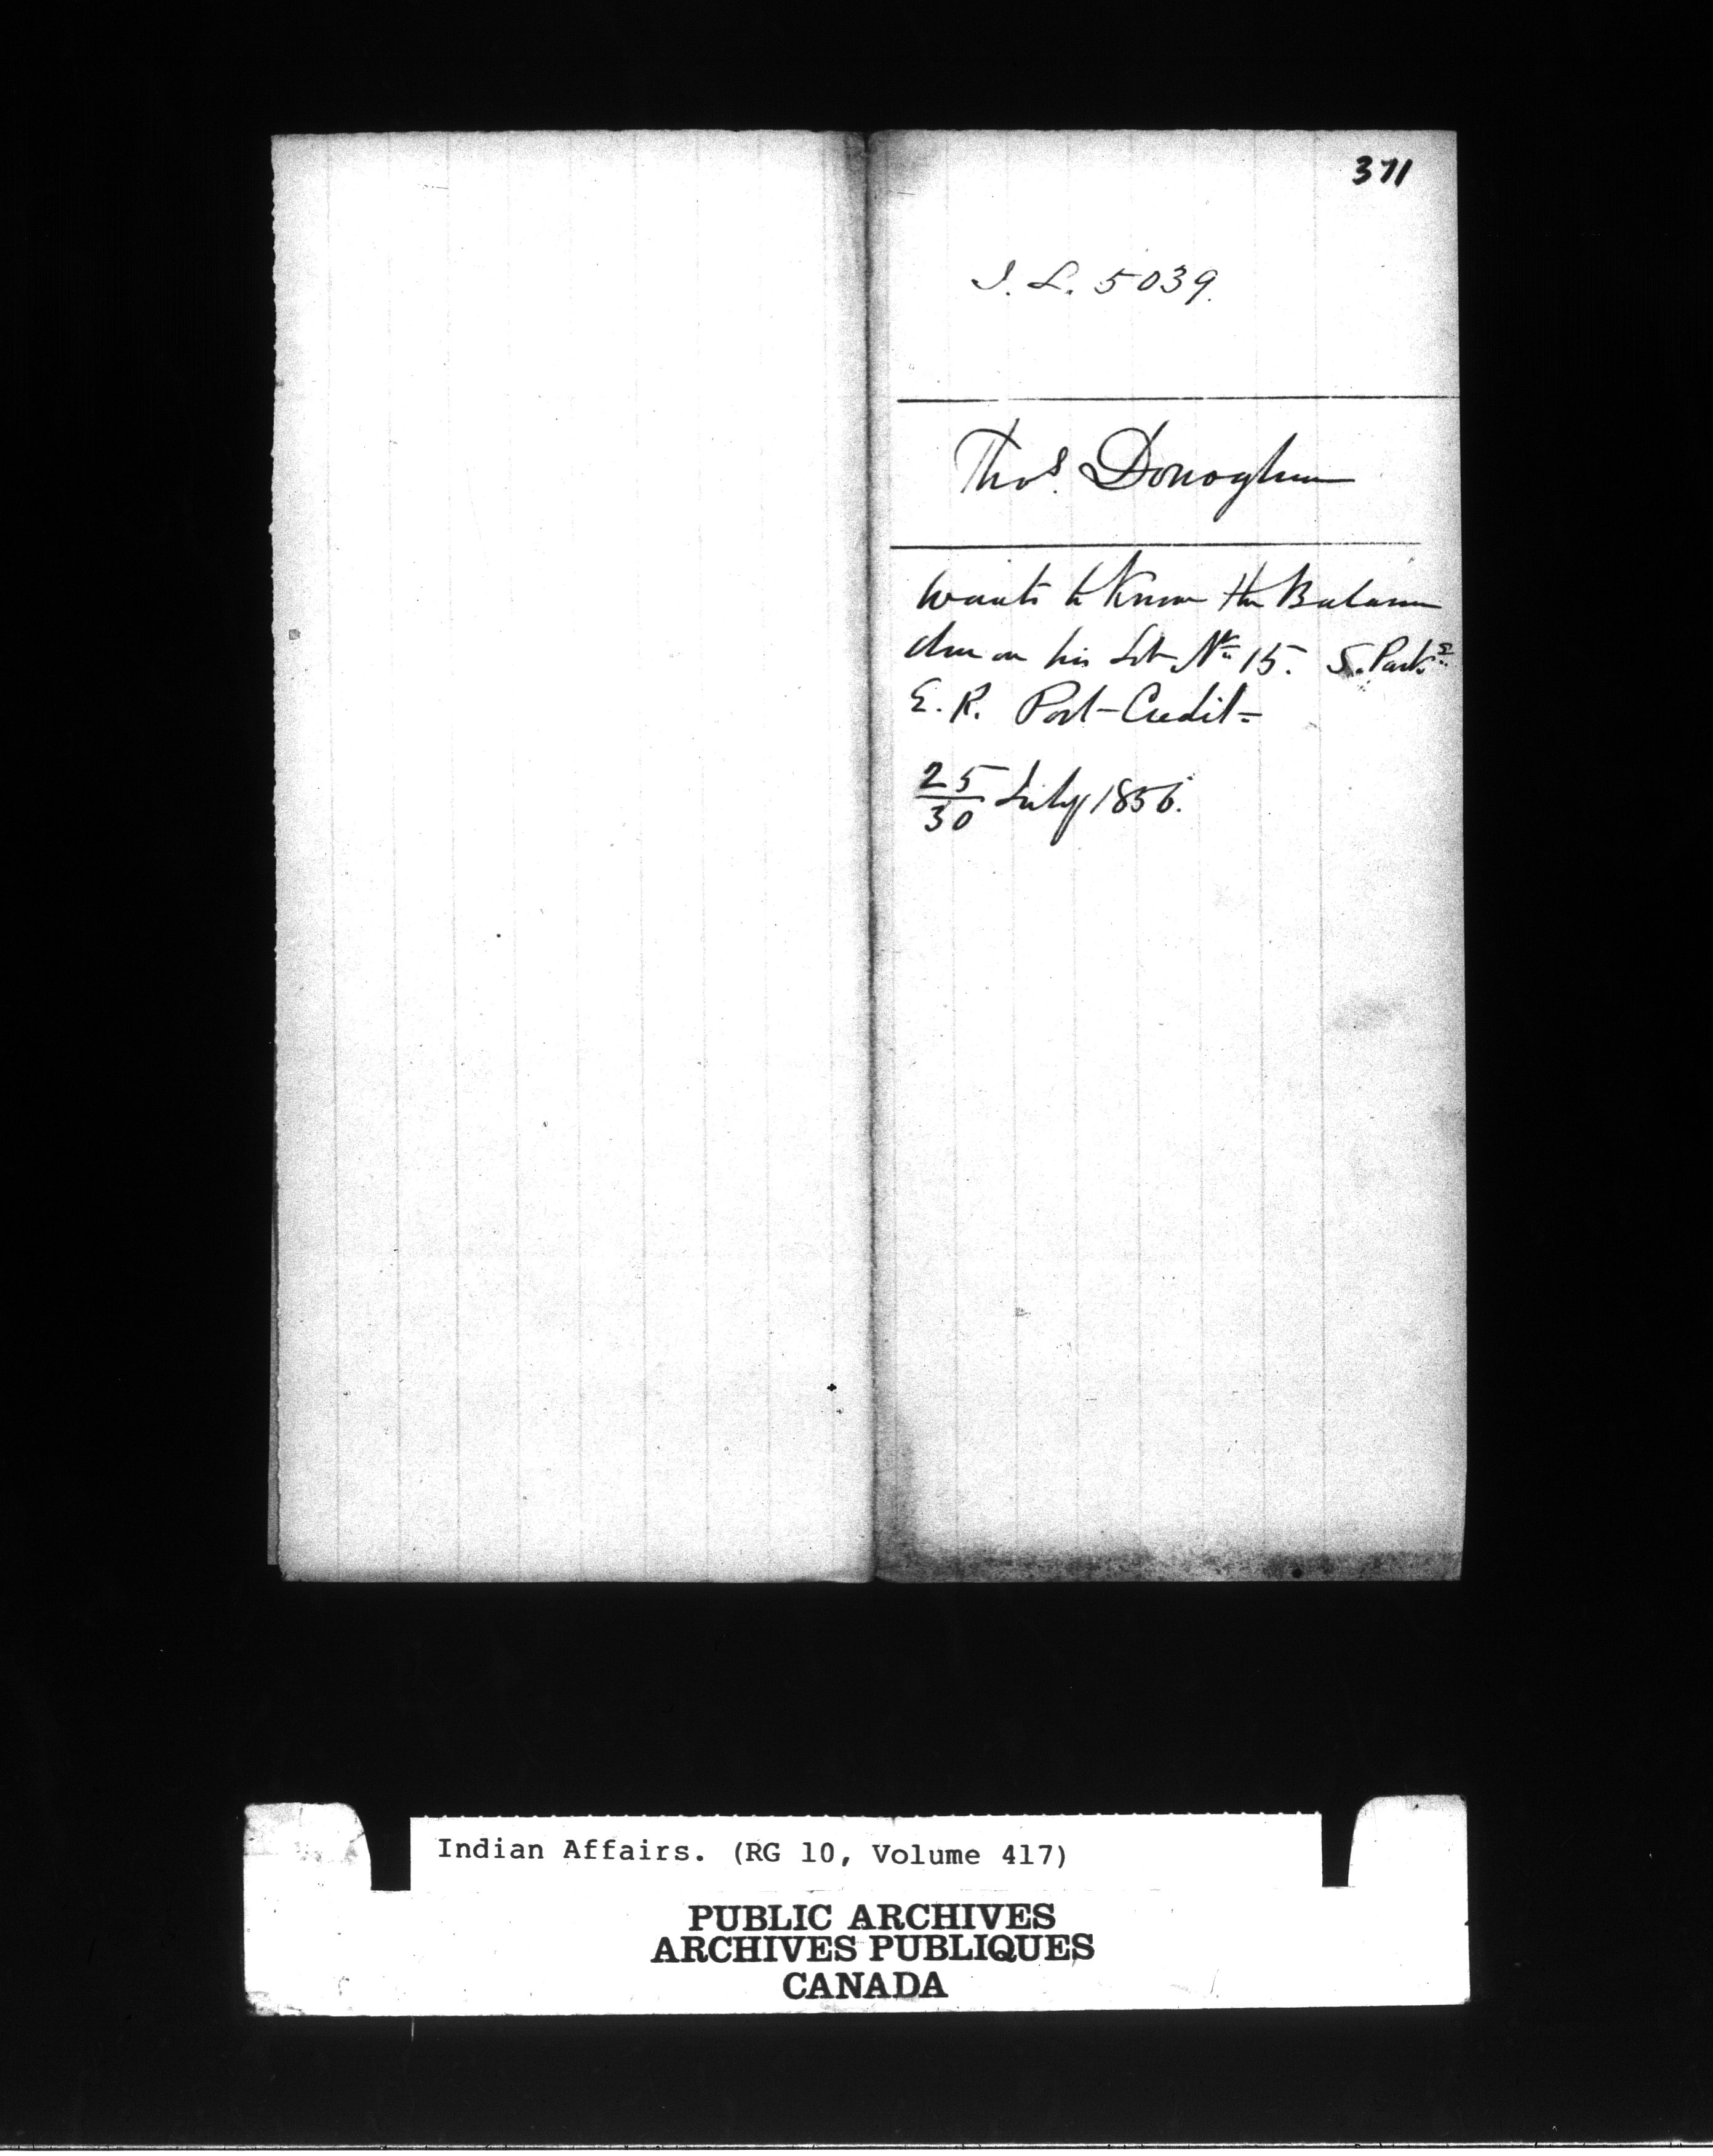 371
I. L. 5039.
Thos. Donoghue
wants to know the Balance
due on his Lot No 15. S. Park St
E. R. Port-Credit-
25/30 July 1856.
Indian Affairs. (RG 10, Volume 417)
PUBLIC ARCHIVES
ARCHIVES PUBLIQUES
CANADA